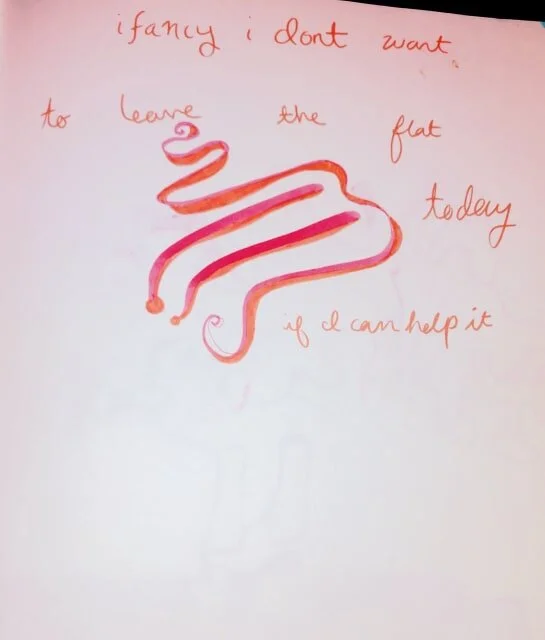 ifancy i dont want
to leave the flat
today
if I can help it